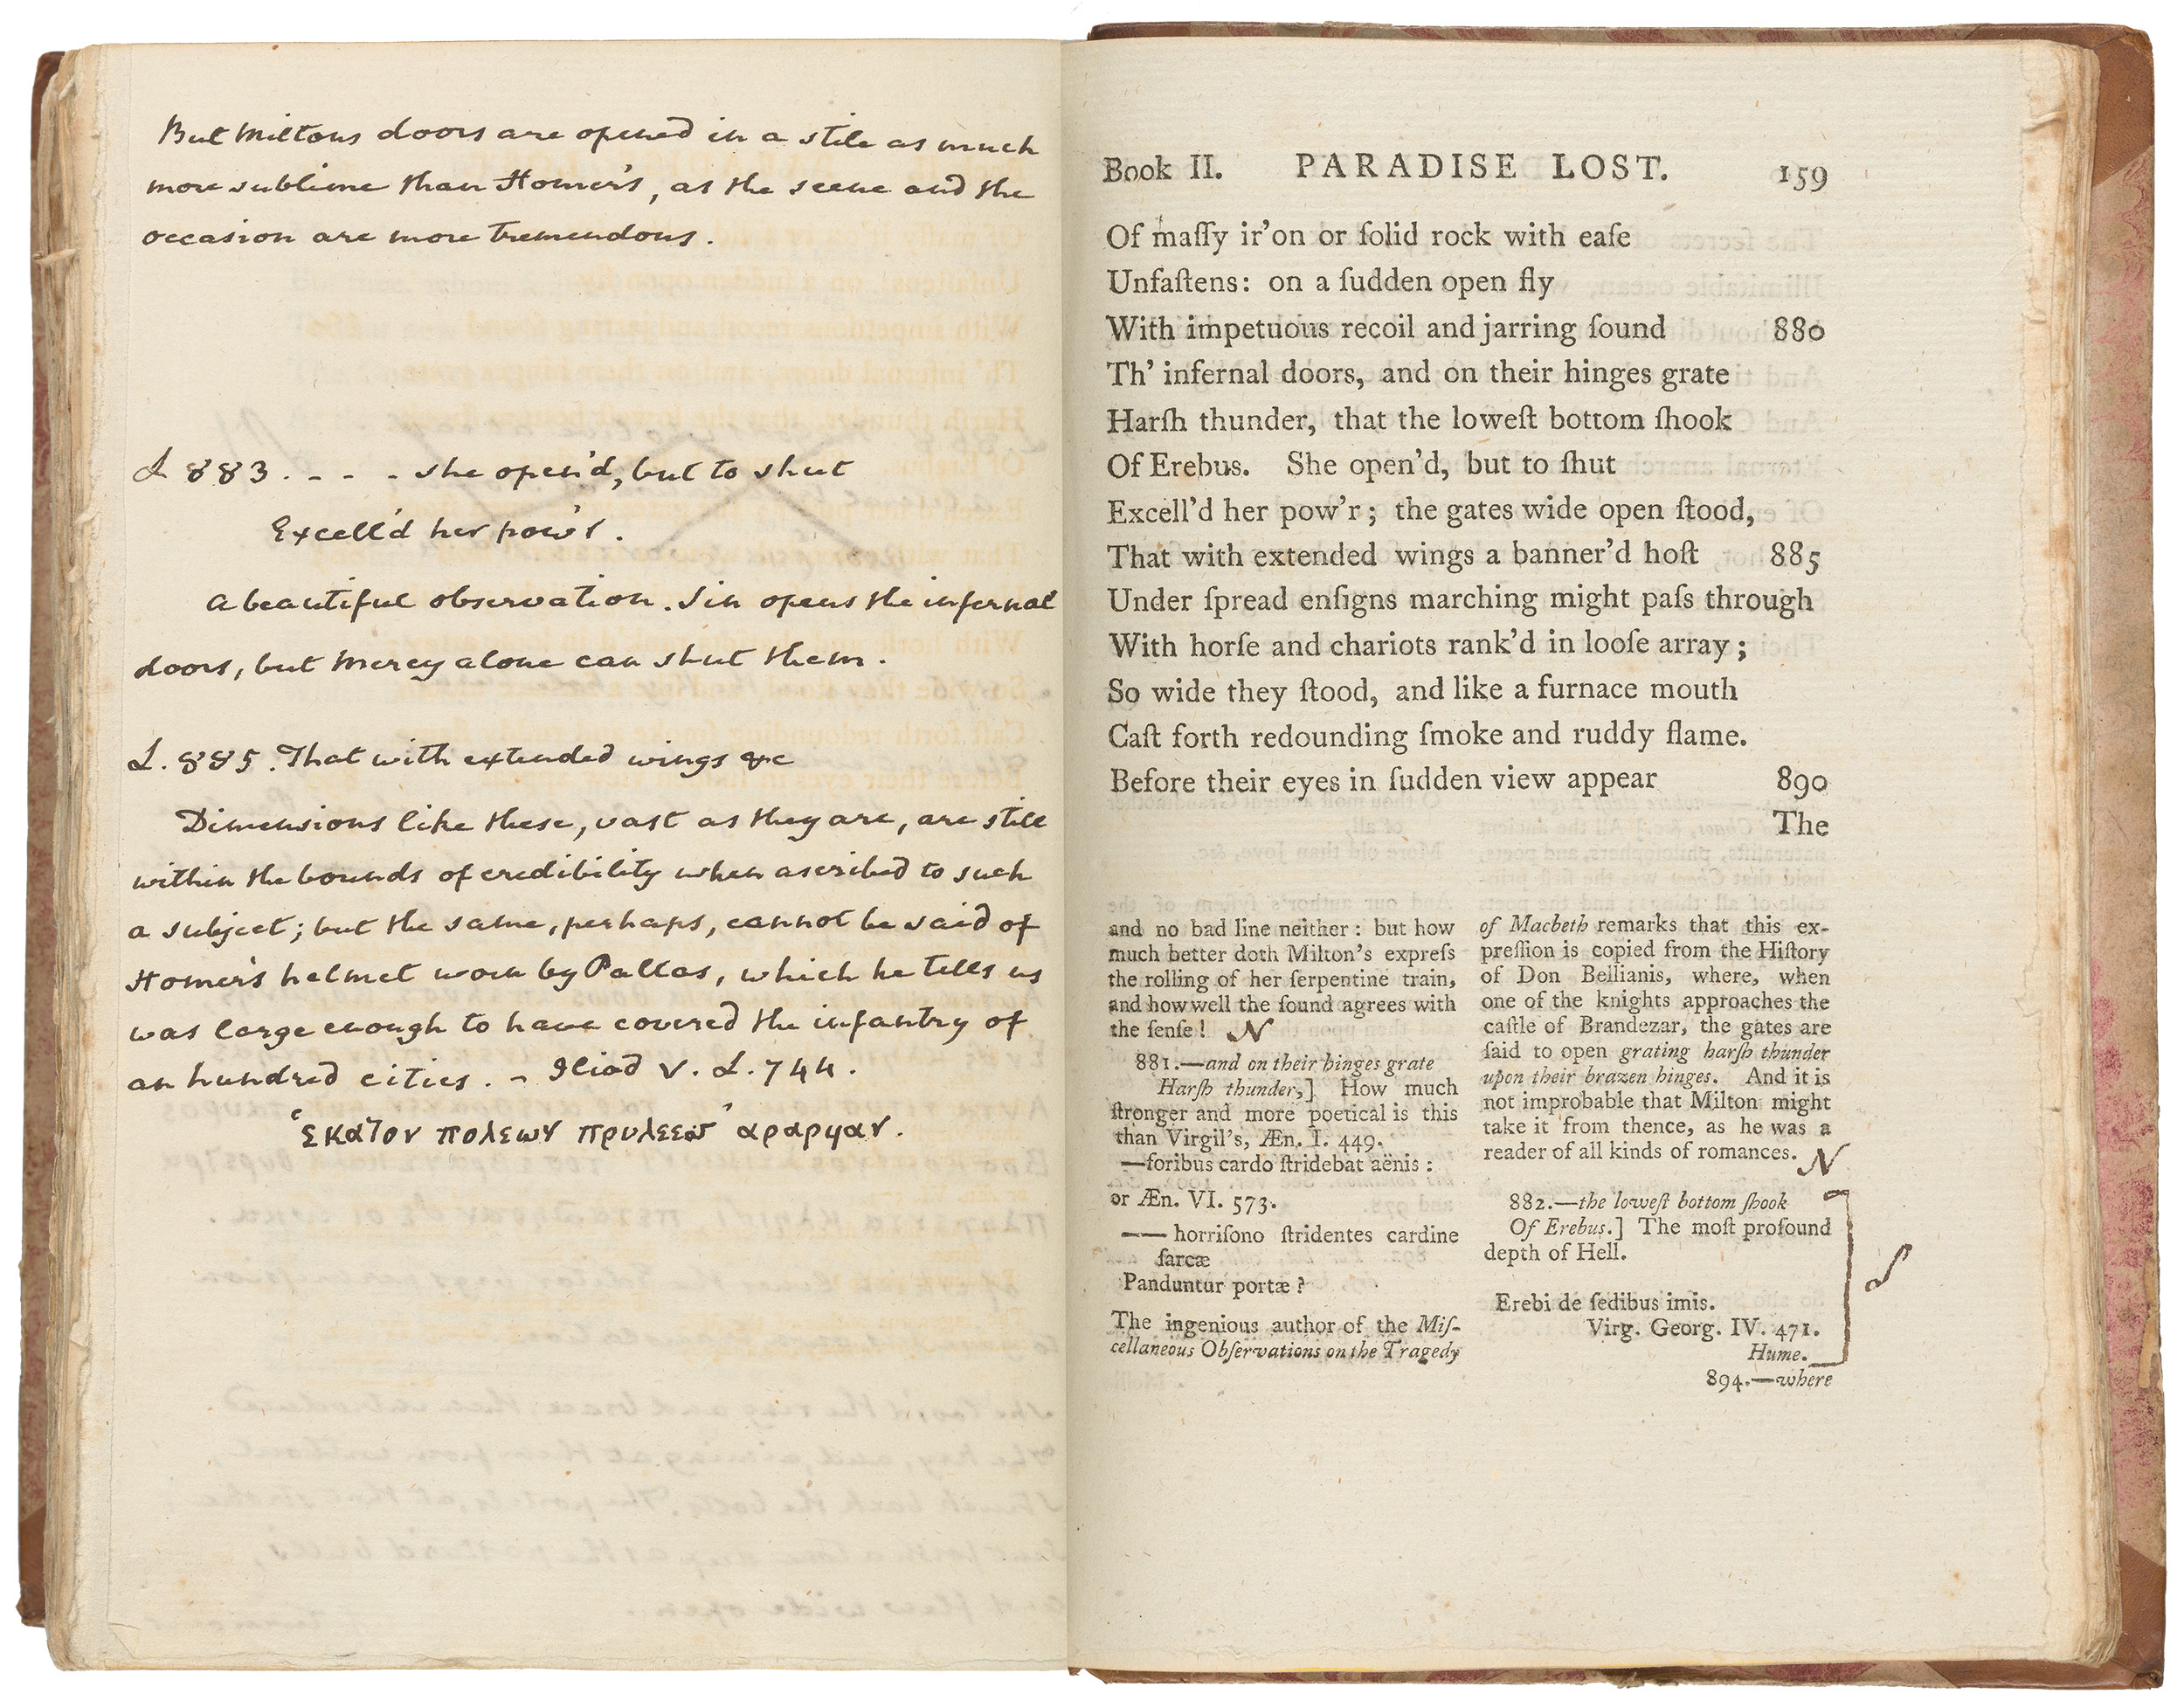 But Miltons doors are opened in a stile as much
more sublime than Homer's, as the scene and the
occasion are more tremendous.
L 883. - - - She open'd, but to shut
Excell'd her pow'r.
A beautiful observation. Sin opens the infernal
doors, but Mercy alone can shut them.
L. 885. That with extended wings &c
Dimensions like these, vast as they are, are still
within the bounds of credibility when ascribed to such
a subject; but the same, perhaps, cannot be said of
Homer's helmet worn by Pallas, which he tells us
was large enough to have covered the infantry of
an hundred cities. - Iliad V. L. 744.
Ἑκατον πολεων πρυλεεσσ' αραρυαν.
Book II. PARADISE LOST. 159
Of maſſy ir'on or ſolid rock with eaſe
Unfaſtens: on a ſudden open fly
With impetuous recoil and jarring ſound 880
Th' infernal doors, and on their hinges grate
Harſh thunder, that the loweſt bottom ſhook
Of Erebus. She open'd, but to ſhut
Excell'd her pow'r; the gates wide open ſtood,
That with extended wings a banner'd hoſt 885
Under ſpread enſigns marching might paſs through
With horſe and chariots rank'd in looſe array;
So wide they ſtood, and like a furnace mouth
Caſt forth redounding ſmoke and ruddy flame.
Before their eyes in ſudden view appear 890
The
and no bad line neither: but how
much better doth Milton's expreſs
the rolling of her ſerpentine train,
and how well the ſound agrees with
the ſenſe! N
881.—and on their hinges grate
Harſh thunder,] How much
ſtronger and more poetical is this
than Virgil's, Æn. I. 449.
—foribus cardo ſtridebat aënis:
or Æn. VI. 573.
—— horriſono ſtridentes cardine
ſacræ
Panduntur portæ?
The ingenious author of the Miſ-
cellaneous Obſervations on the Tragedy
of Macbeth remarks that this ex-
preſſion is copied from the Hiſtory
of Don Bellianis, where, when
one of the knights approaches the
caſtle of Brandezar, the gates are
ſaid to open grating harſh thunder
upon their brazen hinges. And it is
not improbable that Milton might
take it from thence, as he was a
reader of all kinds of romances. N
882.—the loweſt bottom ſhook
Of Erebus.] The moſt profound
depth of Hell.
Erebi de ſedibus imis.
Virg. Georg. IV. 471.
Hume.
894.—where